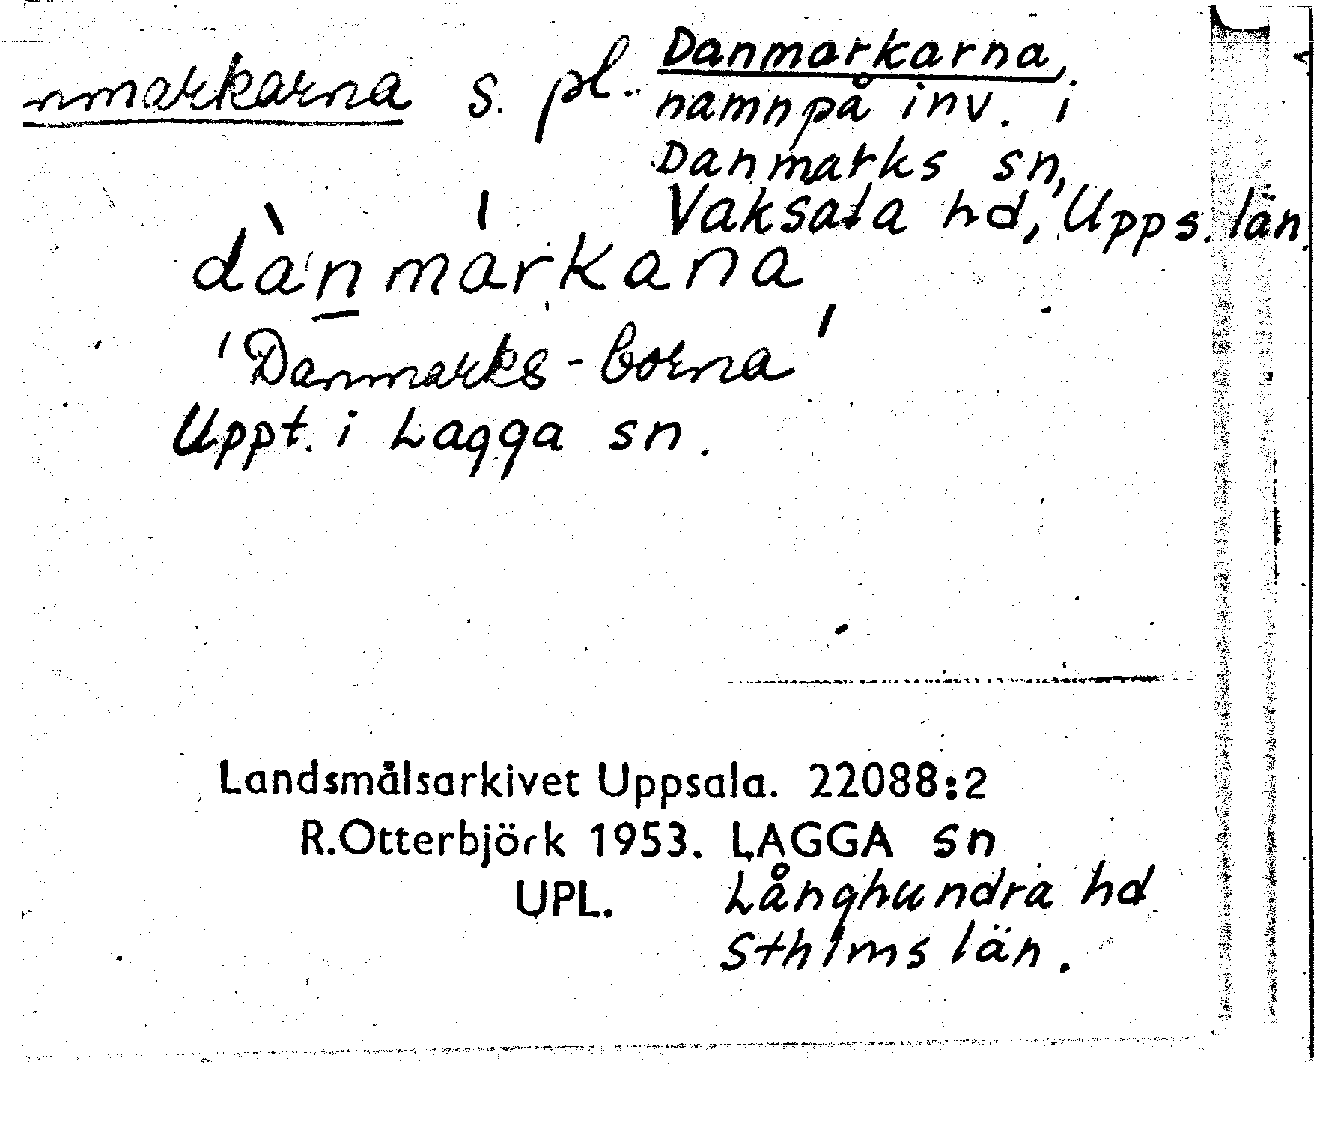 nmarkarna s. pl.
Danmarkarna,
namn på inv. i
Danmarks sn,
Vaksala hd, Upps. län.
dànmárkana
'Danmarks-borna'
Uppt. i Lagga sn.
Landsmålsarkivet Uppsala. 22088:2
R.Otterbjörk 1953. LAGGA sn
UPL. Långhundra hd
Sthlms län.